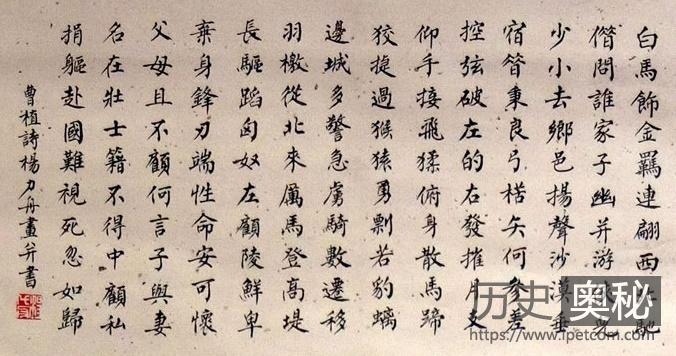 白馬飾金羈連翩西北馳
借問誰家子幽并游俠兒
少小去鄉邑揚聲沙漠垂
宿昔秉良弓楛矢何參差
控弦破左的右發摧月支
仰手接飛猱俯身散馬蹄
狡捷過猴猿勇剽若豹螭
邊城多警急虜騎數遷移
羽檄從北來厲馬登高堤
長驅蹈匈奴左顧陵鮮卑
棄身鋒刃端性命安可懷
父母且不顧何言子與妻
名在壯士籍不得中顧私
捐軀赴國難視死忽如歸
曹植詩楊力舟畫并書
历史奥秘
www.ipetcom.com